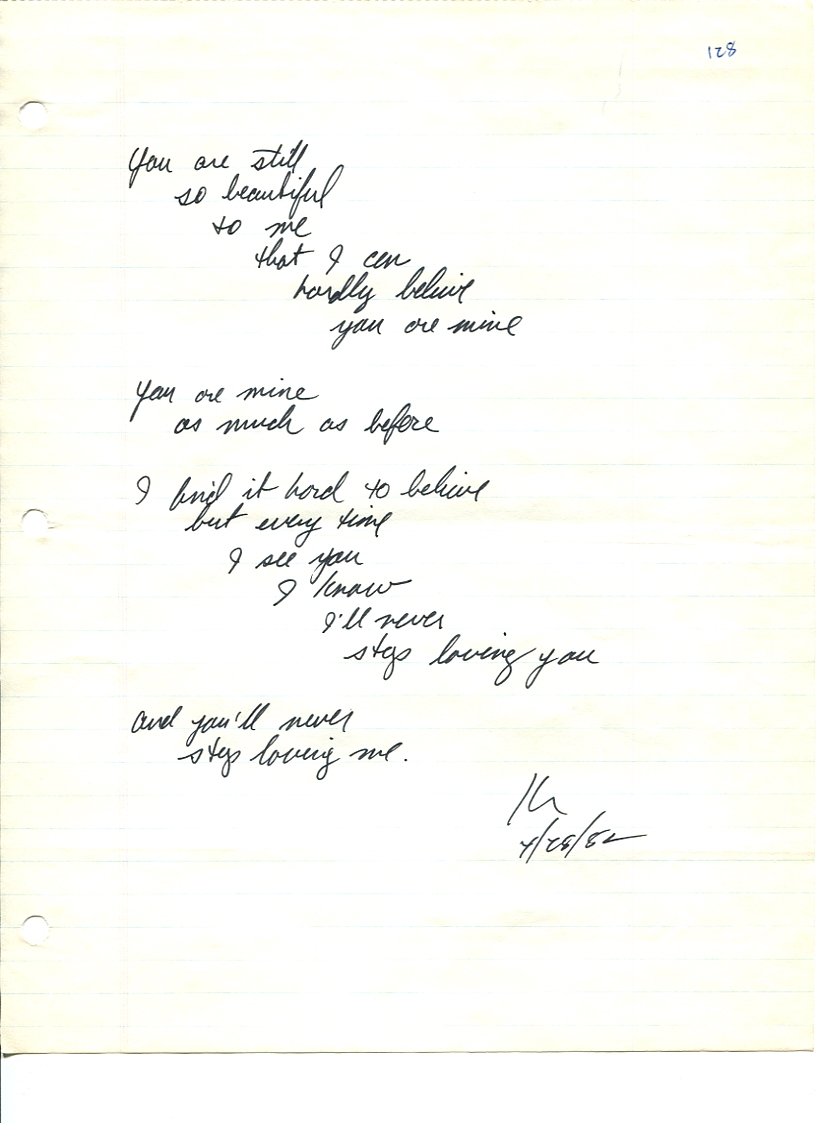 128
You are still
so beautiful
to me
that I can
hardly believe
you are mine
You are mine
as much as before
I find it hard to believe
but every time
I see you
I know
I'll never
stop loving you
and you'll never
stop loving me.
4/28/82